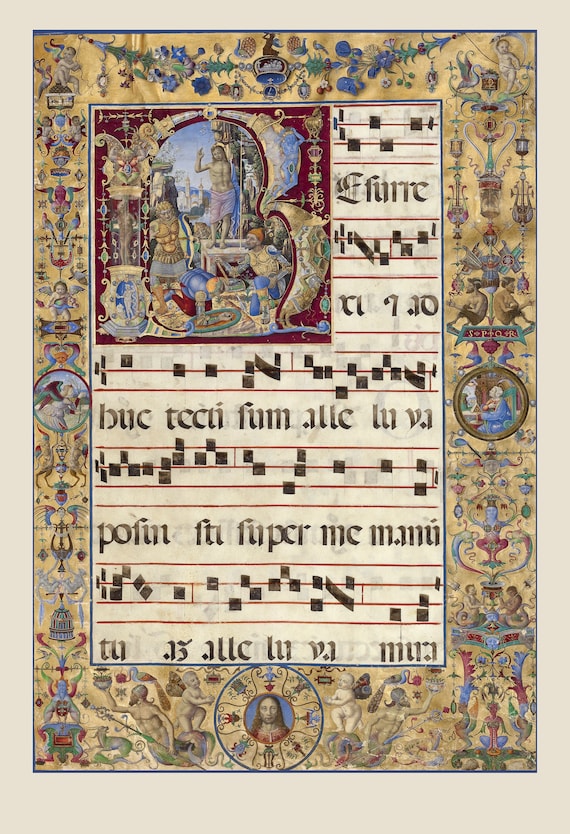 Resurre
xi ⁊ ad
huc tecū sum alle lu ya
posui sti super me manū
tu aȝ alle lu ya mira
S·P·Q·R